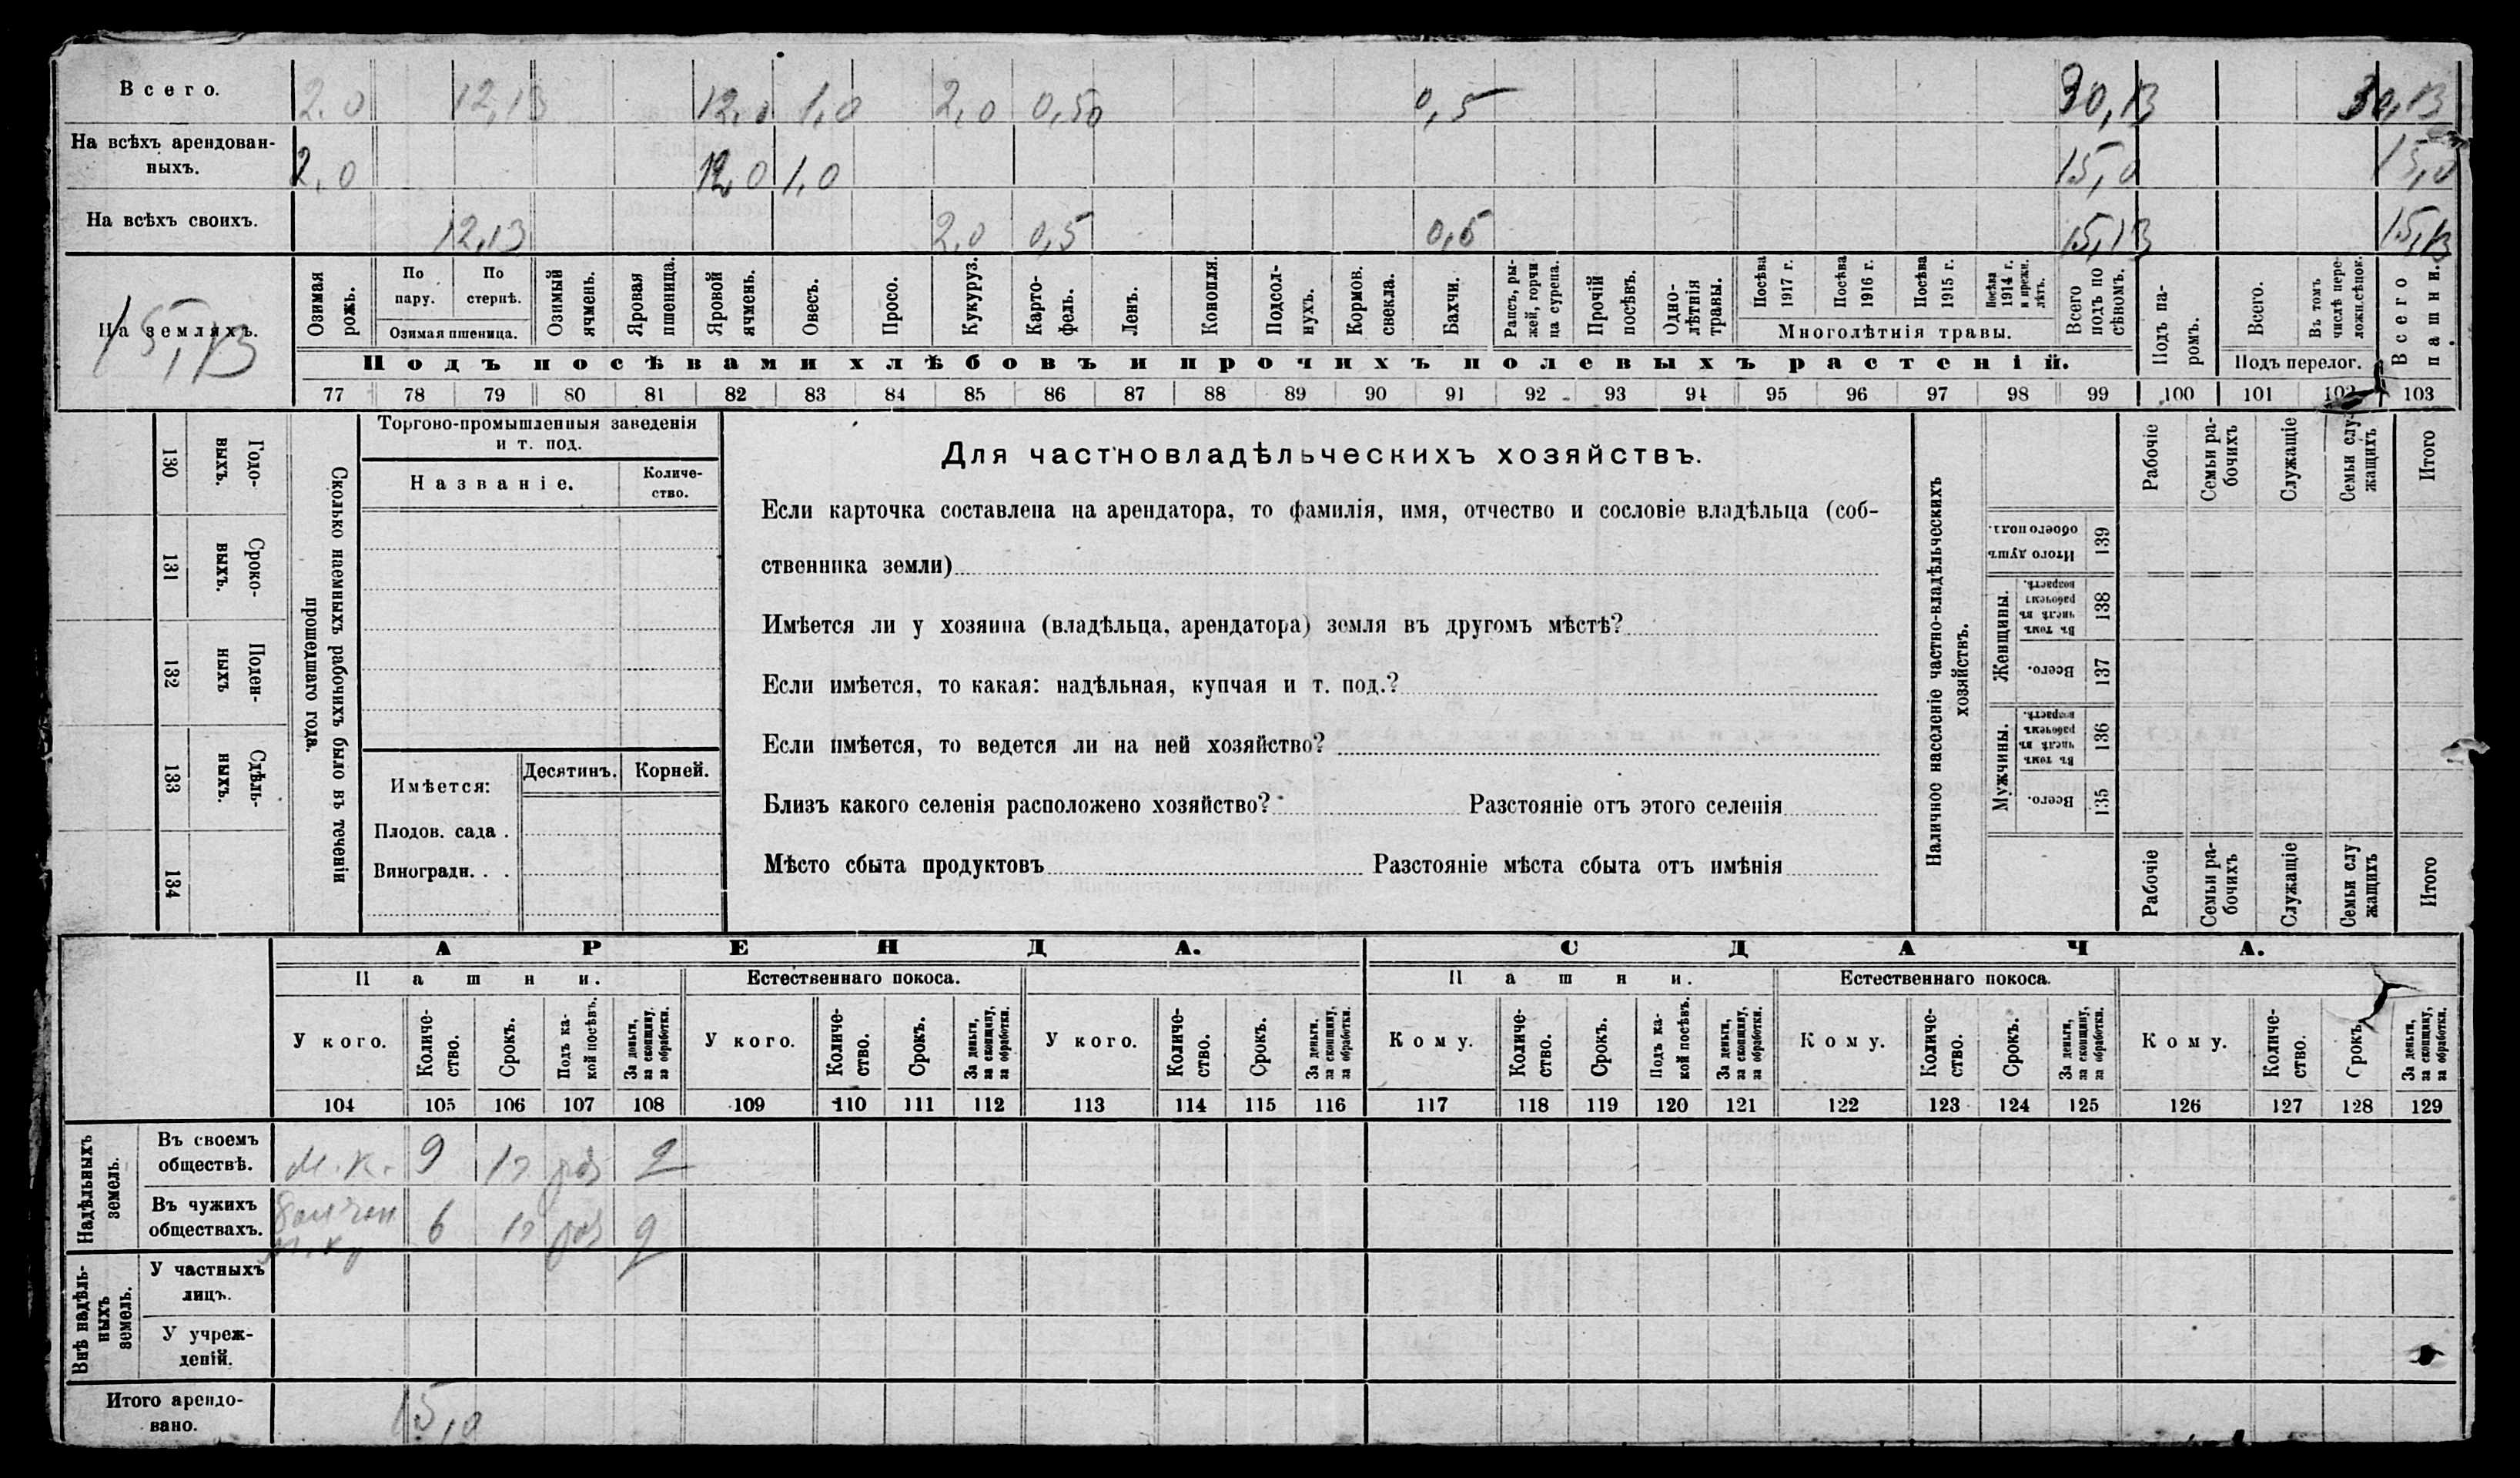 Всего. 2.0 12,13 12,0 1,0 2,0 0,50 0,5 30,13 30,13
На всѣхъ арендован-
ныхъ. 2.0 12,0 1,0 15,0 15,0
На всѣхъ своихъ. 12,13 2,0 0,5 0,5 15,13 15,13
На земляхъ.
15,13
Озимая рожь.
По пару.
По стернѣ.
Озимая пшеница.
Озимый ячмень.
Яровая пшеница.
Яровой ячмень.
Овесъ.
Просо.
Кукуруз.
Карто-
фель.
Ленъ.
Конопля.
Подсол-
нухъ.
Кормов.
свекла.
Бахчи.
Рапсъ, ры-
жей, горчи
ца сурепа.
Прочій
посѣвъ.
Одно-
лѣтнія
травы.
Посѣва
1917 г.
Посѣва
1916 г.
Посѣва
1915 г.
Посѣва
1914 г.
и прежн.
лѣтъ.
Многолѣтнія травы.
Всего
подъ по
сѣвомъ.
Подъ па-
ромъ.
Всего.
Въ томъ
числѣ пере-
ложн.сѣнок.
Подъ перелог.
Всего
пашни.
Подъ посѣвами хлѣбовъ и прочихъ полевыхъ растеній.
77 78 79 80 81 82 83 84 85 86 87 88 89 90 91 92 93 94 95 96 97 98 99 100 101 102 103
130 Годо-
выхъ.
131 Сроко-
выхъ.
132 Поден-
ныхъ
133 Сдѣль-
ныхъ.
134
Сколько наемныхъ рабочихъ было въ теченіи
прошедшаго года.
Торгово-промышленныя заведенія
и т. под.
Названіе.
Количе-
ство.
Имѣется:
Десятинъ.
Корней.
Плодов. сада .
Виноградн. . .
Для частновладѣльческихъ хозяйствъ.
Если карточка составлена на арендатора, то фамилія, имя, отчество и сословіе владѣльца (соб-
ственника земли)
Имѣется ли у хозяина (владѣльца, арендатора) земля въ другомъ мѣстѣ?
Если имѣется, то какая: надѣльная, купчая и т. под.?
Если имѣется, то ведется ли на ней хозяйство?
Близъ какого селенія расположено хозяйство? Разстояніе отъ этого селенія
Мѣсто сбыта продуктовъ Разстояніе мѣста сбыта отъ имѣнія
Наличное населеніе частно-владѣльческихъ
хозяйствъ.
Рабочіе
Семьи ра-
бочихъ
Служащіе
Семьи слу-
жащихъ
Итого
Итого душъ
обоего пола.
139
Женщины.
Въ томъ
числѣ въ
рабочемъ
возрастѣ.
138
Всего.
137
Мужчины.
Въ томъ
числѣ въ
рабочемъ
возрастѣ.
136
Всего.
135
Рабочіе
Семьи ра-
бочихъ
Служащіе
Семьи слу
жащихъ
Итого
АРЕНДА.
СДАЧА.
Пашни.
Естественнаго покоса.
Пашни.
Естественнаго покоса.
У кого.
Количе-
ство.
Срокъ.
Подъ ка-
кой посѣвъ.
За деньги,
за скопщину,
за обработки.
У кого.
Количе-
ство.
Срокъ.
За деньги,
за скопщину,
за обработки.
У кого.
Количе-
ство.
Срокъ.
За деньги,
за скопщину,
за обработки.
Кому.
Количе-
ство.
Срокъ.
Подъ ка-
кой посѣвъ.
За деньги,
за скопщину,
за обработки.
Кому.
Количе-
ство.
Срокъ.
За деньги,
за скопщину,
за обработки.
Кому.
Количе-
ство.
Срокъ.
За деньги,
за скопщину,
за обработки.
104 105 106 107 108 109 110 111 112 113 114 115 116 117 118 119 120 121 122 123 124 125 126 127 128 129
Надѣльныхъ
земель.
Въ своемъ
обществѣ. М. к. 9 1г
Въ чужихъ
обществахъ. 6 1г
Внѣ надѣль-
ныхъ
земель.
У частныхъ
лицъ.
У учреж-
деній.
Итого арендо-
вано. 15,0